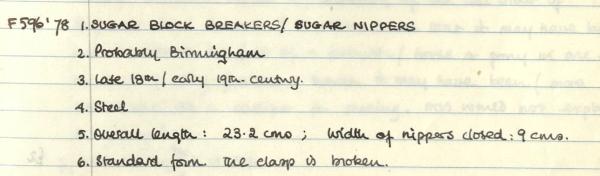 F596'78 1. SUGAR BLOCK BREAKERS/ SUGAR NIPPERS
2. Probably Birmingham
3. Late 18th / early 19th century.
4. Steel
5. Overall length : 23.2 cms ; Width of nippers closed : 9 cms.
6. Standard form the clasp is broken.